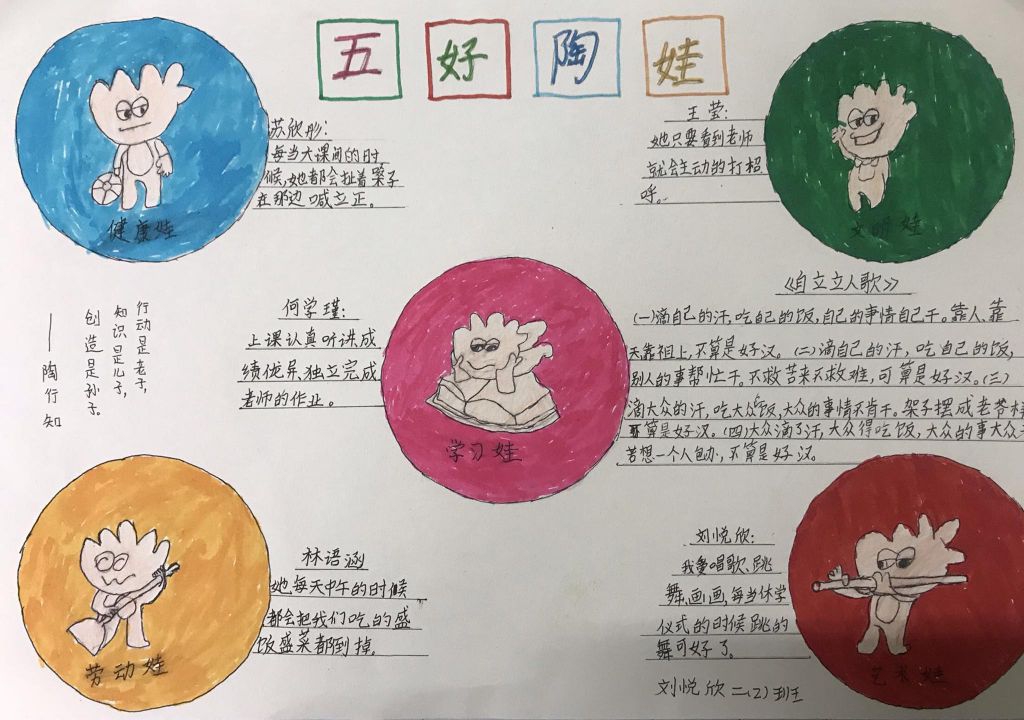 五好陶娃
苏欣彤:
每当大课间的时
候,她都会扯着嗓子
在那边喊立正。
健康娃
王莹:
她只要看到老师
就会主动的打招
呼。
文明娃
行动是老子,
知识是儿子,
创造是孙子。
——陶行知
何学瑾:
上课认真听讲,成
绩优异、独立完成
老师的作业。
学习娃
《自立立人歌》
(一)滴自己的汗,吃自己的饭,自己的事情自己干。靠人、靠
天靠祖上,不算是好汉。(二)滴自己的汗,吃自己的饭,
别人的事帮忙干。不救苦来不救难,可算是好汉。(三)
滴大众的汗,吃大众饭,大众的事情不肯干。架子摆成老爷样
不算是好汉。(四)大众滴了汗,大众得吃饭,大众的事大众
若想一个人包办,不算是好汉。
林语涵
她每天中午的时候
都会把我们吃的盛
饭盛菜都倒掉。
劳动娃
刘悦欣:
我爱唱歌、跳
舞、画画,每当休学
仪式的时候跳的
舞可好了。
艺术娃
刘悦欣 二(2)班